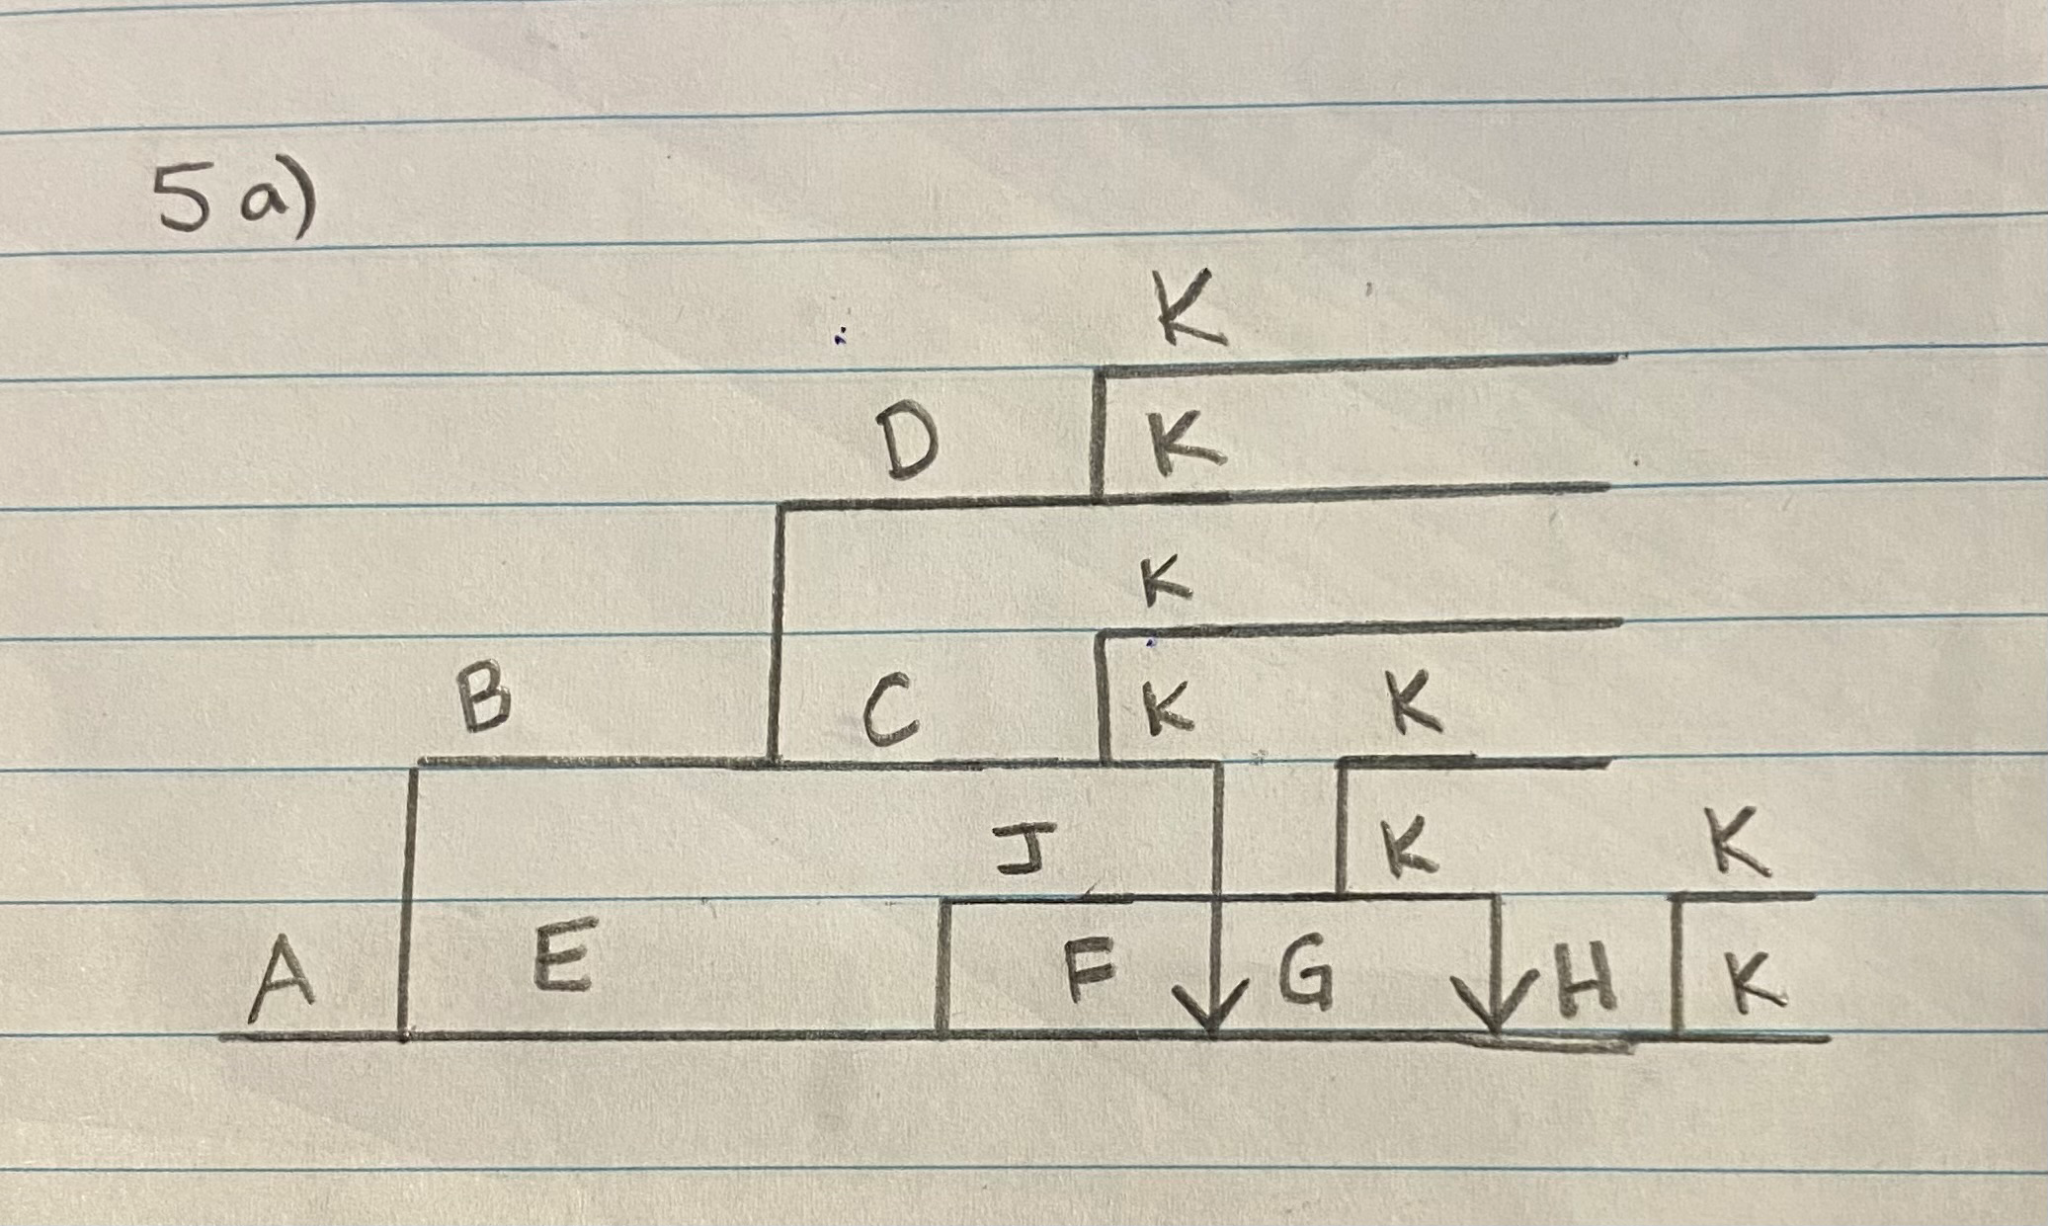 5a)
K
D K
K
B C K K
J K K
A E F G H K